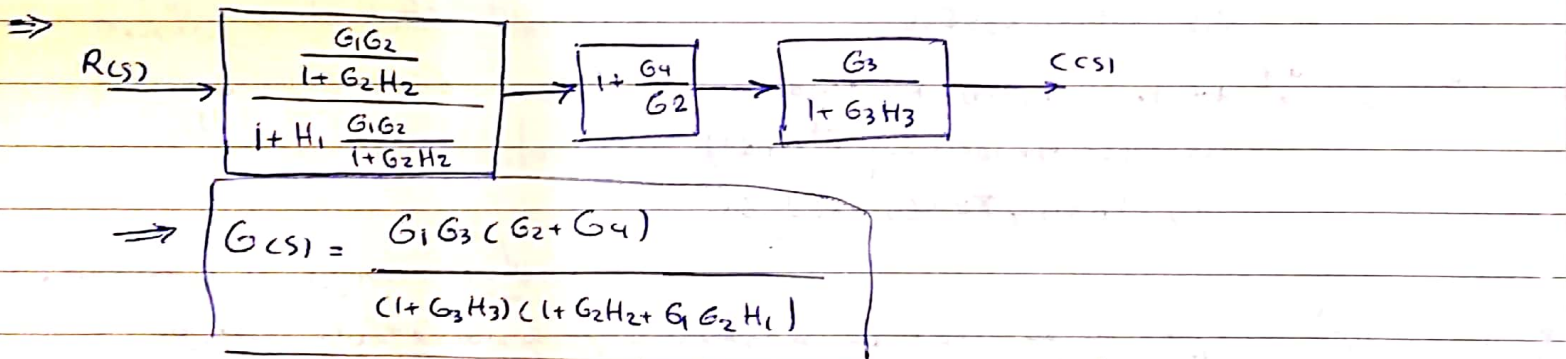 ⇒ R(s) → [ (G₁G₂ / (1 + G₂H₂)) / (1 + H₁ (G₁G₂ / (1 + G₂H₂))) ] → [ 1 + G₄/G2 ] → [ G₃ / (1 + G₃H₃) ] → C(s)
⇒ G(s) = G₁G₃(G₂ + G₄) / ((1 + G₃H₃)(1 + G₂H₂ + G₁G₂H₁))